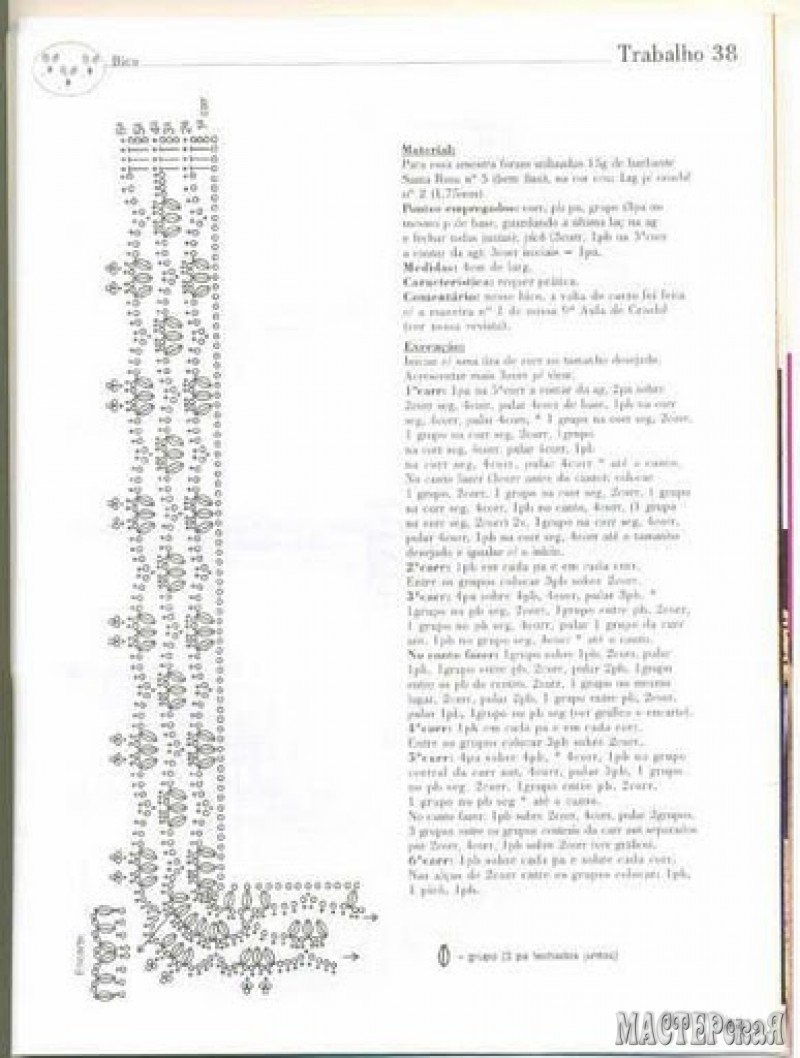 Bico
Trabalho 38
Material:
Para essa amostra foram utilizadas 15g de barbante
Santa Rosa nº 5 (bem fino), na cor cru; 1ag p/ crochê
nº 2 (1,75mm).
Pontos empregados: corr, pb, pa, grupo (3pa no
mesmo p de base, guardando a última laç na ag
e fechar todas juntas), picô (3corr, 1pb na 3ªcorr
a contar da ag). 3corr iniciais = 1pa.
Medidas: 4cm de larg.
Característica: requer prática.
Comentário: nesse bico, a volta do canto foi feita
c/ a maneira nº 1 de nossa 9ª Aula de Crochê
(ver nossa revista).
Execução:
Iniciar c/ uma tira de corr no tamanho desejado.
Acrescentar mais 3corr p/ virar.
1ªcarr: 1pa na 5ªcorr a contar da ag, 2pa sobre
2corr seg, 4corr, pular 4corr de base, 1pb na corr
seg, 4corr, pular 4corr, * 1 grupo na corr seg, 2corr,
1 grupo na corr seg, 2corr, 1grupo
na corr seg, 4corr, pular 4corr, 1pb
na corr seg, 4corr, pular 4corr * até o canto.
No canto fazer (3corr antes do canto): colocar
1 grupo, 2corr, 1 grupo na corr seg, 2corr, 1 grupo
na corr seg, 4corr, 1pb no canto, 4corr, (1 grupo
na corr seg, 2corr) 2x, 1grupo na corr seg, 4corr,
pular 4corr, 1pb na corr seg, 4corr até o tamanho
desejado e igualar c/ o início.
2ªcarr: 1pb em cada pa e em cada corr.
Entre os grupos colocar 3pb sobre 2corr.
3ªcarr: 4pa sobre 4pb, 4corr, pular 3pb, *
1grupo no pb seg, 2corr, 1grupo entre pb, 2corr,
1 grupo no pb seg, 4corr, pular 1 grupo da carr
ant, 1pb no grupo seg, 4corr * até o canto.
No canto fazer: 1grupo sobre 1pb, 2corr, pular
1pb, 1grupo entre pb, 2corr, pular 2pb, 1grupo
entre os pb do centro, 2corr, 1 grupo no mesmo
lugar, 2corr, pular 2pb, 1 grupo entre pb, 2corr,
pular 1pb, 1grupo no pb seg (ver gráfico e encarte).
4ªcarr: 1pb em cada pa e em cada corr.
Entre os grupos colocar 3pb sobre 2corr.
5ªcarr: 4pa sobre 4pb, * 4corr, 1pb no grupo
central da carr ant, 4corr, pular 3pb, 1 grupo
no pb seg, 2corr, 1grupo entre pb, 2corr,
1 grupo no pb seg * até o canto.
No canto fazer: 1pb sobre 2corr, 4corr, pular 2grupos,
3 grupos entre os grupos centrais da carr ant separados
por 2corr, 4corr, 1pb sobre 2corr (ver gráfico).
6ªcarr: 1pb sobre cada pa e sobre cada corr.
Nas alças de 2corr entre os grupos colocar: 1pb,
1 picô, 1pb.
= grupo (3 pa fechados juntos)
МАСТЕРская